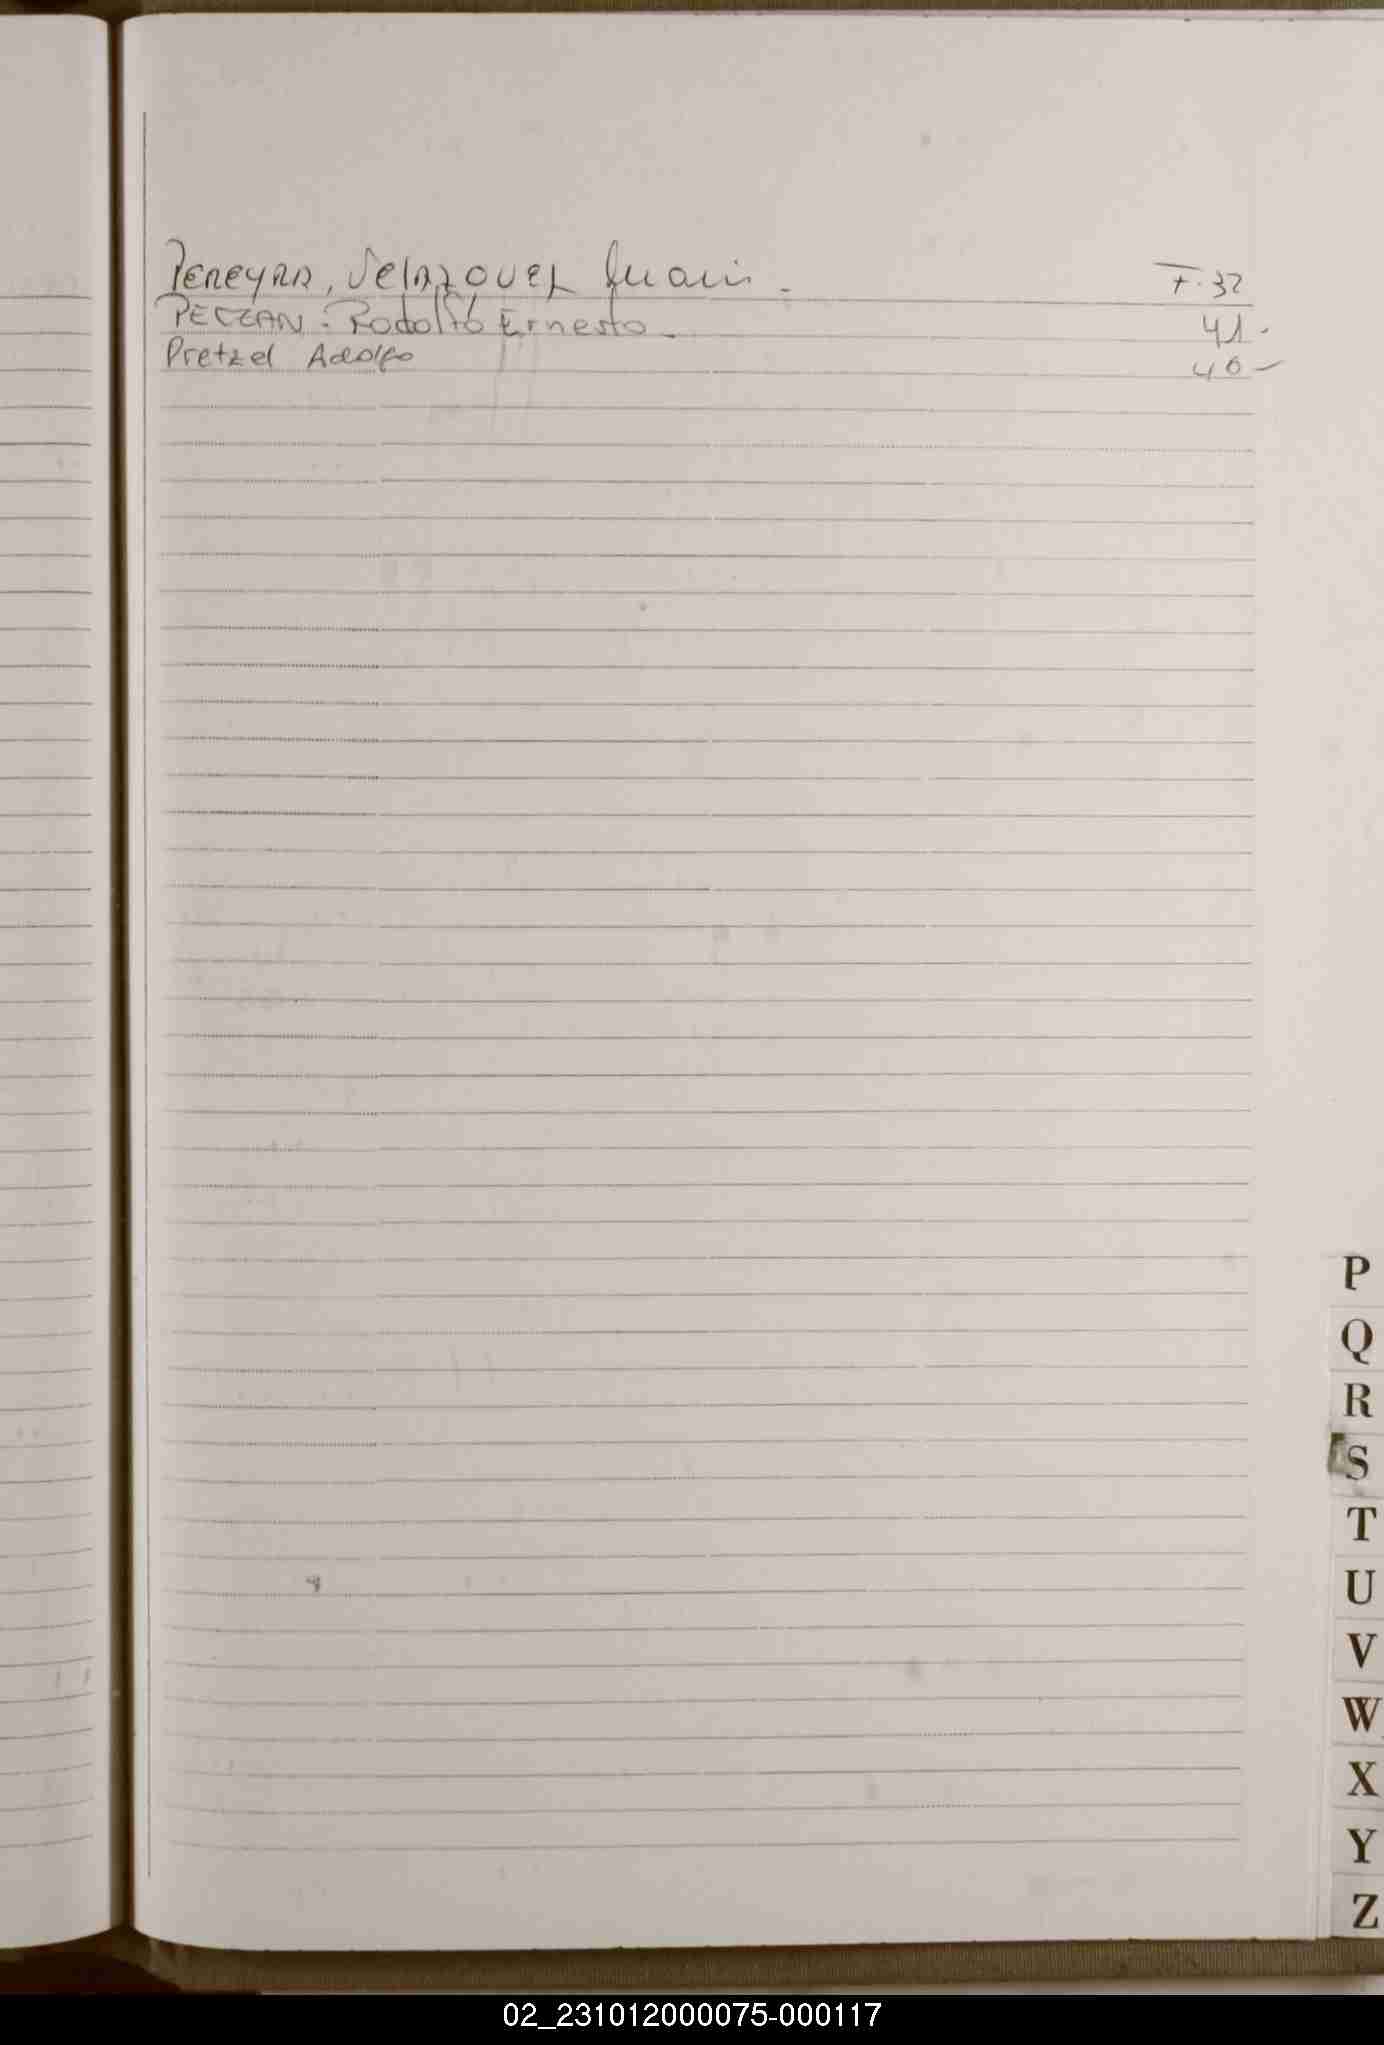 PEREYRA, VELAZQUEZ F. 32
PECZAN. Rodolfo Ernesto - 41 -
Pretzel Adolfo 46 -
P
Q
R
S
T
U
V
W
X
Y
Z
02_231012000075-000117